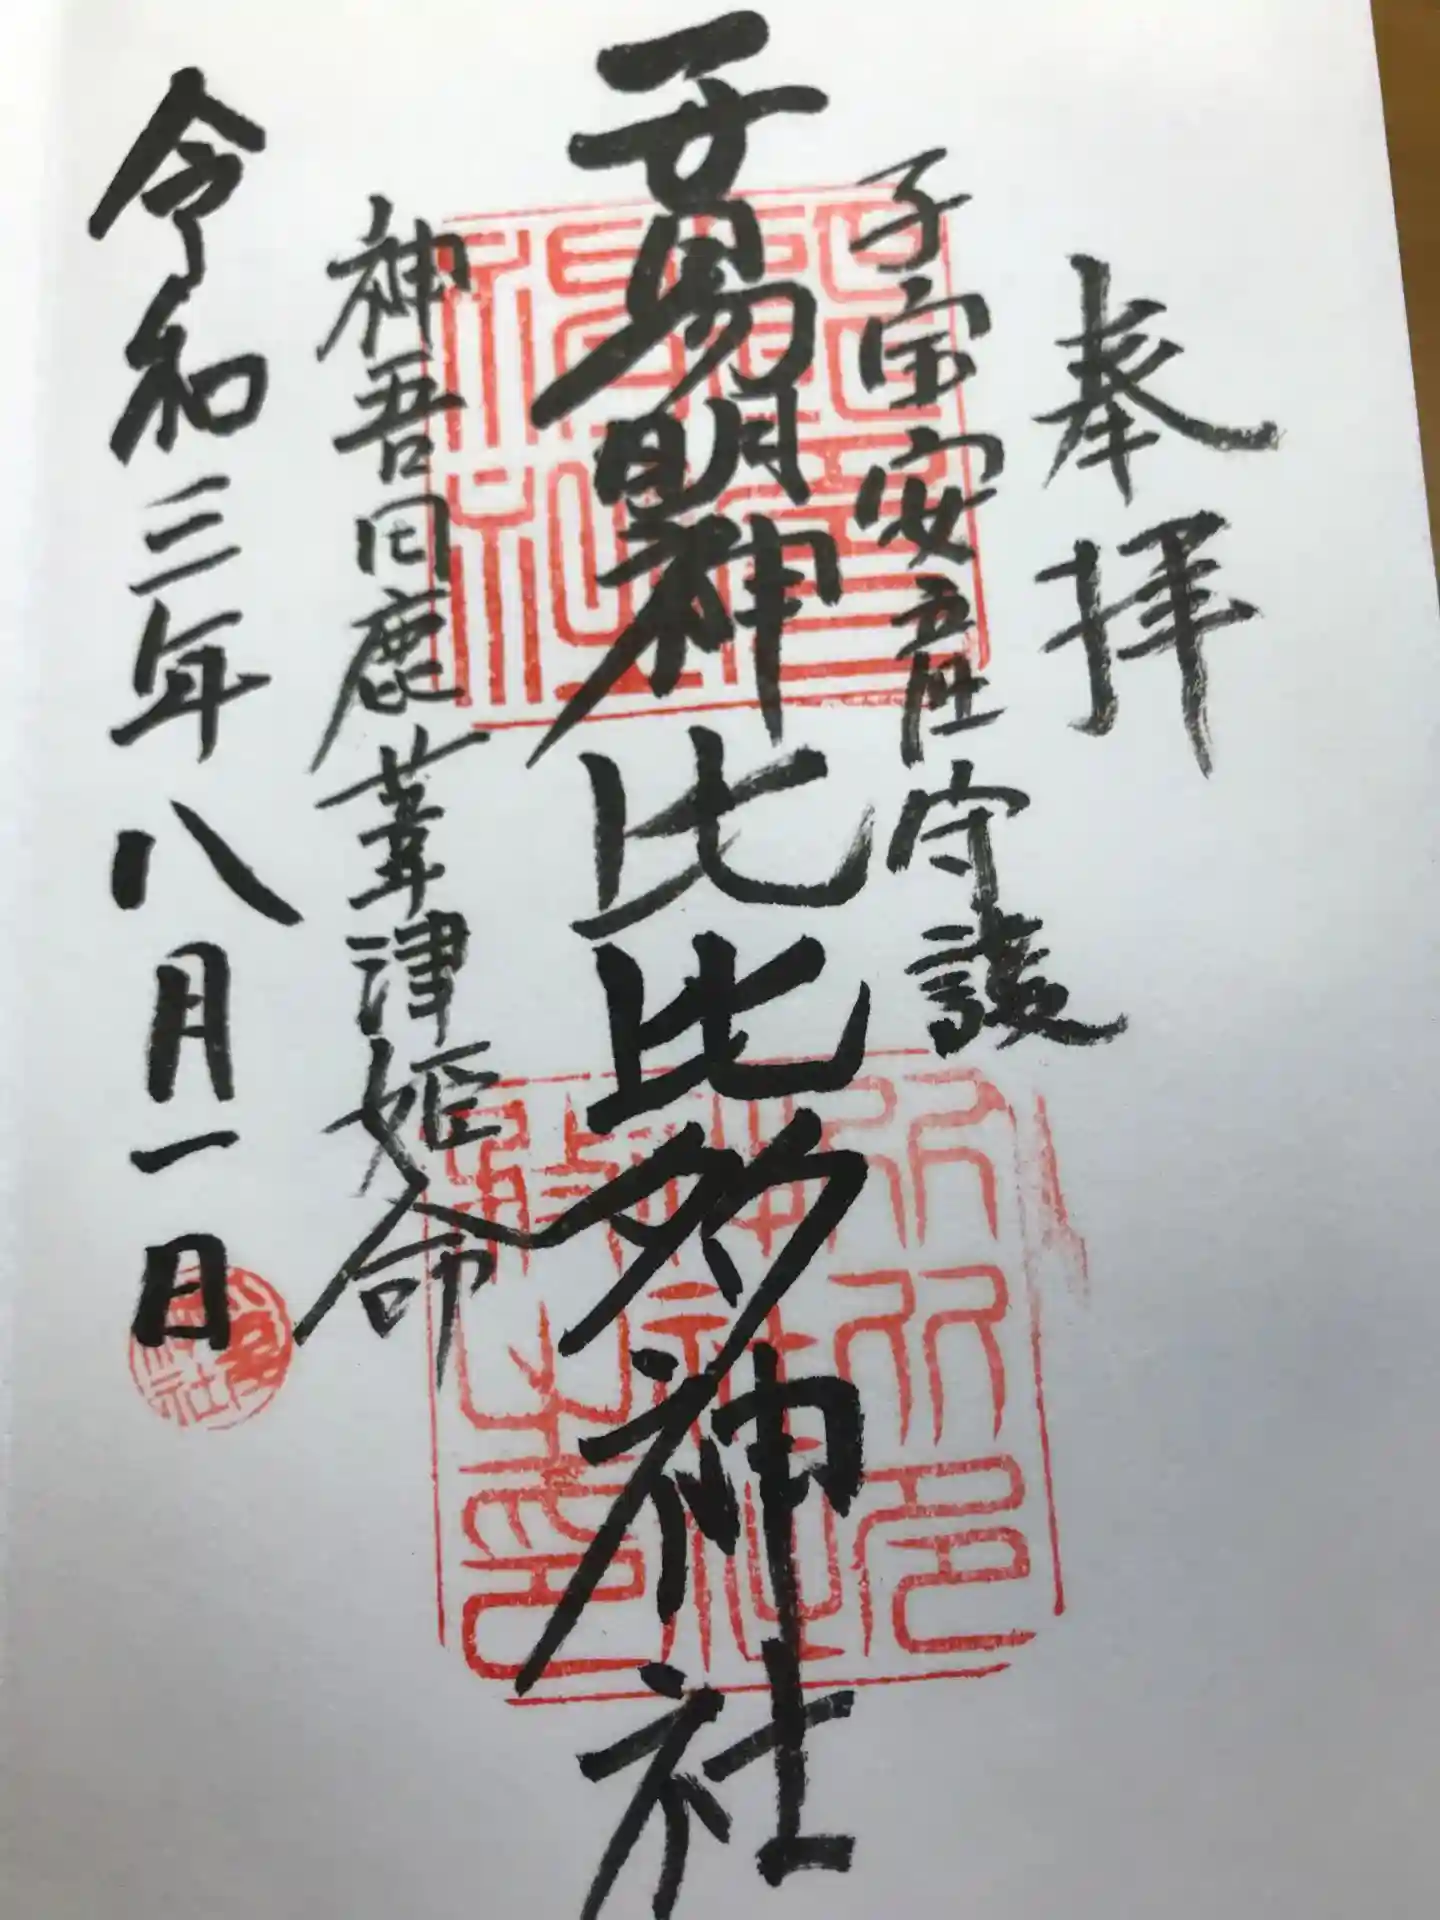 奉拝
子宝安産守護
子易明神比比多神社
神吾田鹿葦津姫命
令和三年八月一日